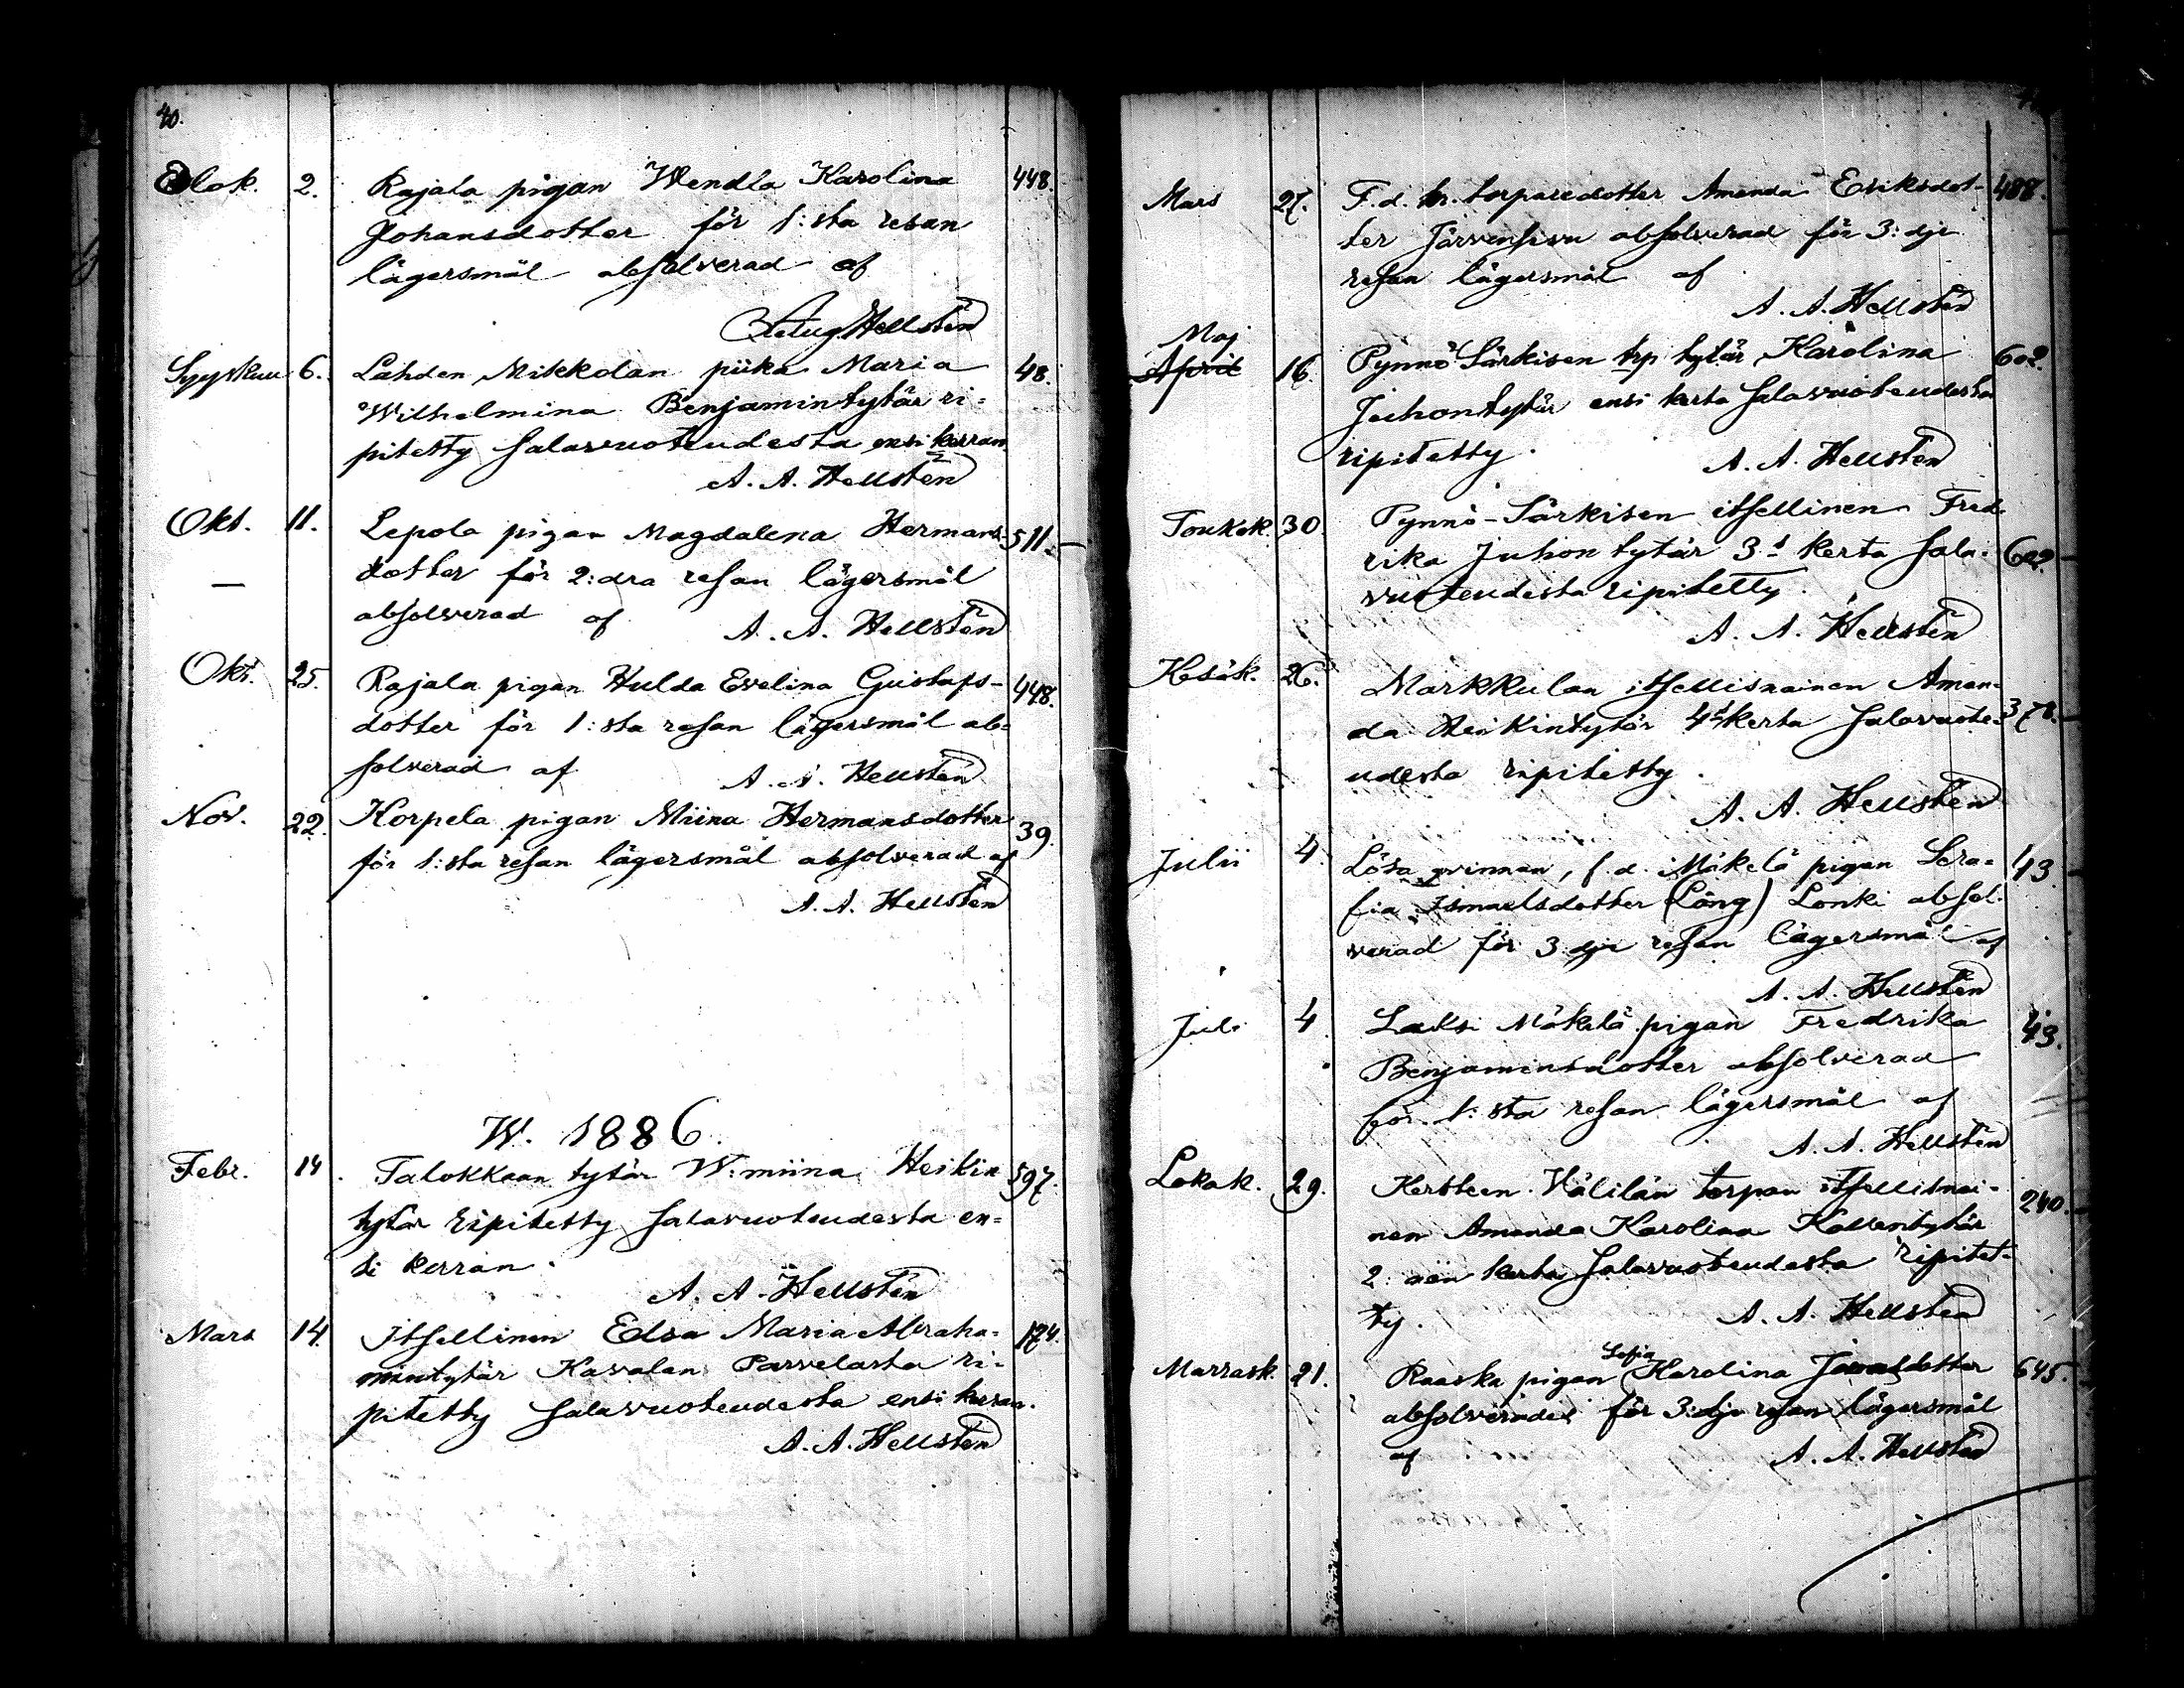 40.
Elok. 2. Rajala pigan Wendla Karolina 448.
Johansdotter för 1:sta resan
lägersmål absolverad af
Aug. Hellstén
Syyskuu 6. Lahden Mikkolan piika Maria 48.
Wilhelmina Benjamintytär ri=
pitetty salavuoteudesta ensi kerran
A. A. Hellstén
Okt. 11. Lepola pigan Magdalena Hermans- 511.
dotter för 2:dra resan lägersmål
absolverad af A. A. Hellstén
Okt. 25. Rajala pigan Hulda Evelina Gustafs- 448.
dotter för 1:sta resan lägersmål ab=
solverad af A. A. Hellstén
Nov. 22. Korpela pigan Miina Hermansdotter 39.
för 1:sta resan lägersmål absolverad af
A. A. Hellstén
W. 1886.
Febr. 14. Talokkaan tytär W:miina Heikin 597.
tytär ripitetty salavuoteudesta en=
si kerran.
A. A. Hellstén
Mars 14. Itsellinen Edsa Maria Abraha= 174.
mintytär Kavalan Parvelasta ri=
pitetty salavuoteudesta ensi kerran.
A. A. Hellstén
Mars 27. F.d. torparedotter Amanda Eriksdot- 488.
ter Järvensivu absolverad för 3:dje
resan lägersmål af
A. A. Hellstén
Maj
April 16. Pynnö Särkisen trp tytär Karolina 602.
Juhontytär ensi kerta salavuoteudesta
ripitetty. A. A. Hellstén
Toukok. 30. Pynnö-Särkisen itsellinen Fred
rika Juhon tytär 3:s kerta sala= 602.
vuoteudesta ripitetty.
A. A. Hellstén
Kesäk. 26. Markkulan itsellisnainen Aman=
da Heikintytär 4:s kerta salavuote= 378.
udesta ripitetty.
A. A. Hellstén
Julii 4. Lösa qvinnan, f.d. Mäkelä pigan Sera= 43.
fia Ismaelsdotter (Lång) Lonki absol=
verad för 3:dje resan lägersmål af
A. A. Hellstén
Juli 4. Mäkelä pigan Fredrika 43.
Benjaminsdotter absolverad
för 1:sta resan lägersmål af
A. A. Hellstén
Lokak. 29. Kersteen Välilän torpan itsellisnai- 240.
nen Amanda Karolina Kallentytär
2:nen kerta salavuoteudesta ripitet-
ty. A. A. Hellstén
Sofia
Marrask. 21. Raaska pigan Karolina 645.
absolverades för 3:dje resan lägersmål
af A. A. Hellstén